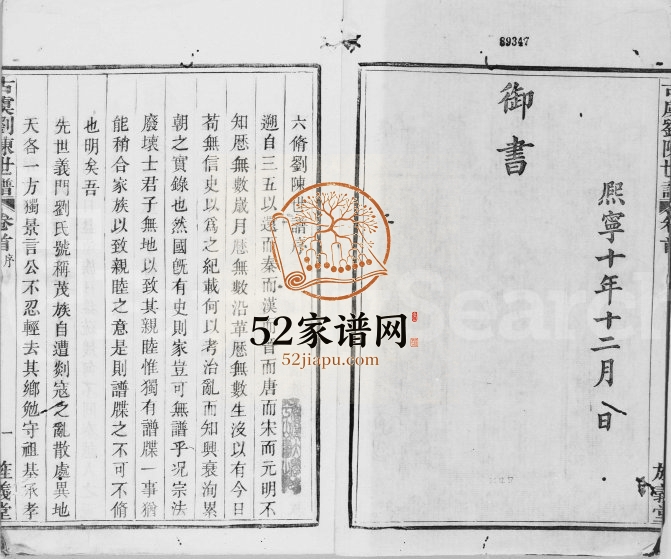 89347
御書
熙寧十年十二月 日
古虞劉陳世譜 卷首
旌義堂
六脩劉陳世譜序
遡自三五以還而秦而漢而晉而唐而宋而元明不
知歷無數歲月歷無數沿革歷無數生沒以有今日
苟無信史以爲之紀載何以考治亂而知興衰洵累
朝之實錄也然國旣有史則家豈可無譜乎况宗法
廢壞士君子無地以致其親睦惟獨有譜牒一事猶
能稍合家族以致親睦之意是則譜牒之不可不脩
也明矣吾
先世義門劉氏號稱茂族自遭剡寇之亂散處異地
天各一方獨景言公不忍輕去其鄉勉守祖基承孝
古虞劉陳世譜 卷首 序
一 旌義堂
52家谱网
52jiapu.com